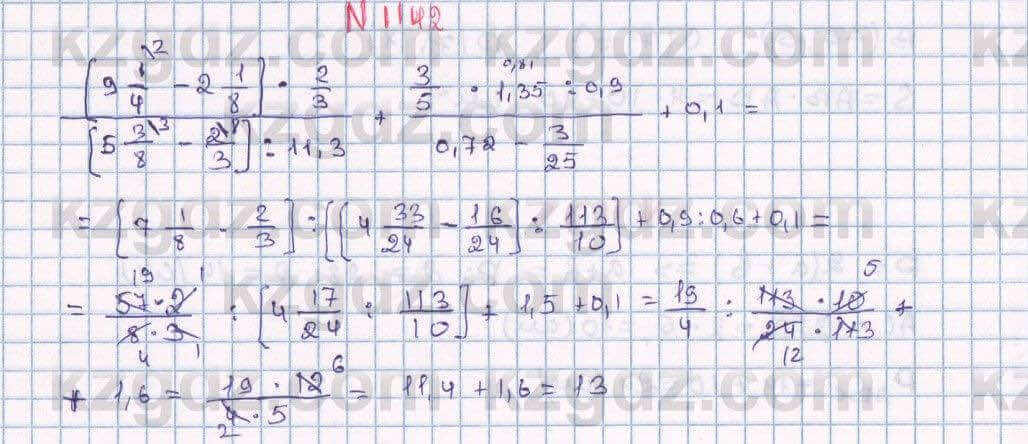 N 1142
[9 1/4 \2 − 2 1/8] · 2/3 / [5 3/8 \3 − 2/3 \8] : 11,3 + 3/5 · 1,35 : 0,9 / 0,72 − 3/25 + 0,1 =
= [7 1/8 · 2/3] : [[4 33/24 − 16/24] : 113/10] + 0,9 : 0,6 + 0,1 =
= 57 · 2 / 8 · 3 : [4 17/24 : 113/10] + 1,5 + 0,1 = 19/4 : 113 · 10 / 24 · 113 +
+ 1,6 = 19 · 12 / 4 · 5 = 11,4 + 1,6 = 13
kzgdz.com